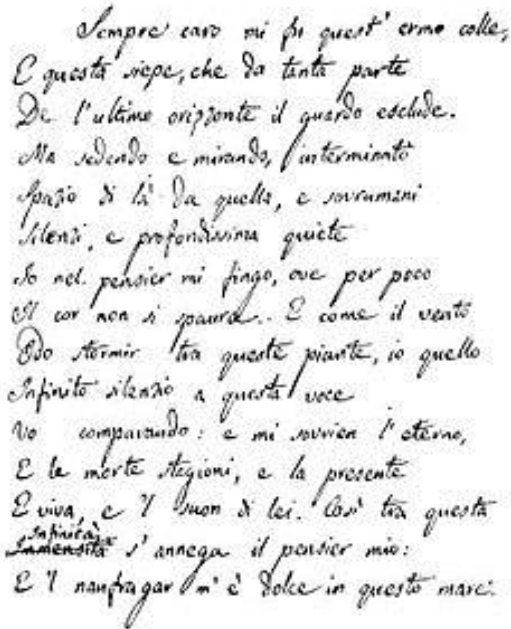 Sempre caro mi fu quest' ermo colle,
E questa siepe, che da tanta parte
De l'ultimo orizzonte il guardo esclude.
Ma sedendo e mirando, interminato
Spazio di là da quella, e sovrumani
Silenzi, e profondissima quiete
Io nel pensier mi fingo, ove per poco
Il cor non si spaura. E come il vento
Odo stormir tra queste piante, io quello
Infinito silenzio a questa voce
Vo comparando: e mi sovvien l'eterno,
E le morte stagioni, e la presente
E viva, e 'l suon di lei. Così tra questa
Infinità
Immensità s' annega il pensier mio:
E 'l naufragar m' è dolce in questo mare.